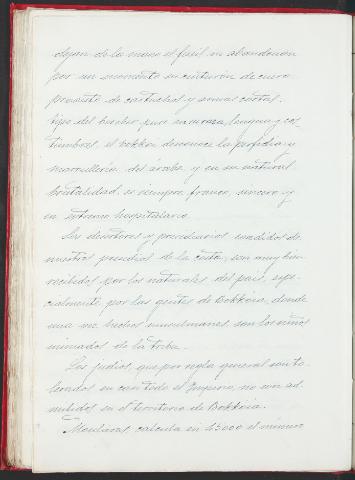 dejan de la mano el fusil ni abandonan
por un momento su cinturón de cuero
provisto de cartuchos y armas cortas.
tipo del bereber puro en raza, lengua y cos-
tumbres, el bokkoi desconoce la perfidia y
marrullería del árabe, y en su natural
brutalidad, es siempre franco, sincero y
en extremo hospitalario.
Los desertores y presidiarios evadidos de
nuestros presidios de la costa, son muy bien
recibidos por los naturales del país, espe-
cialmente por las gentes de Bokkoia, donde
una vez hechos musulmanes, son los niños
mimados de la tribu.
Los judios, que por regla general son to-
lerados en casi todo el Imperio, no son ad-
mitidos en el territorio de Bokkoia.
Mouliéras, calcula en 25000 el número